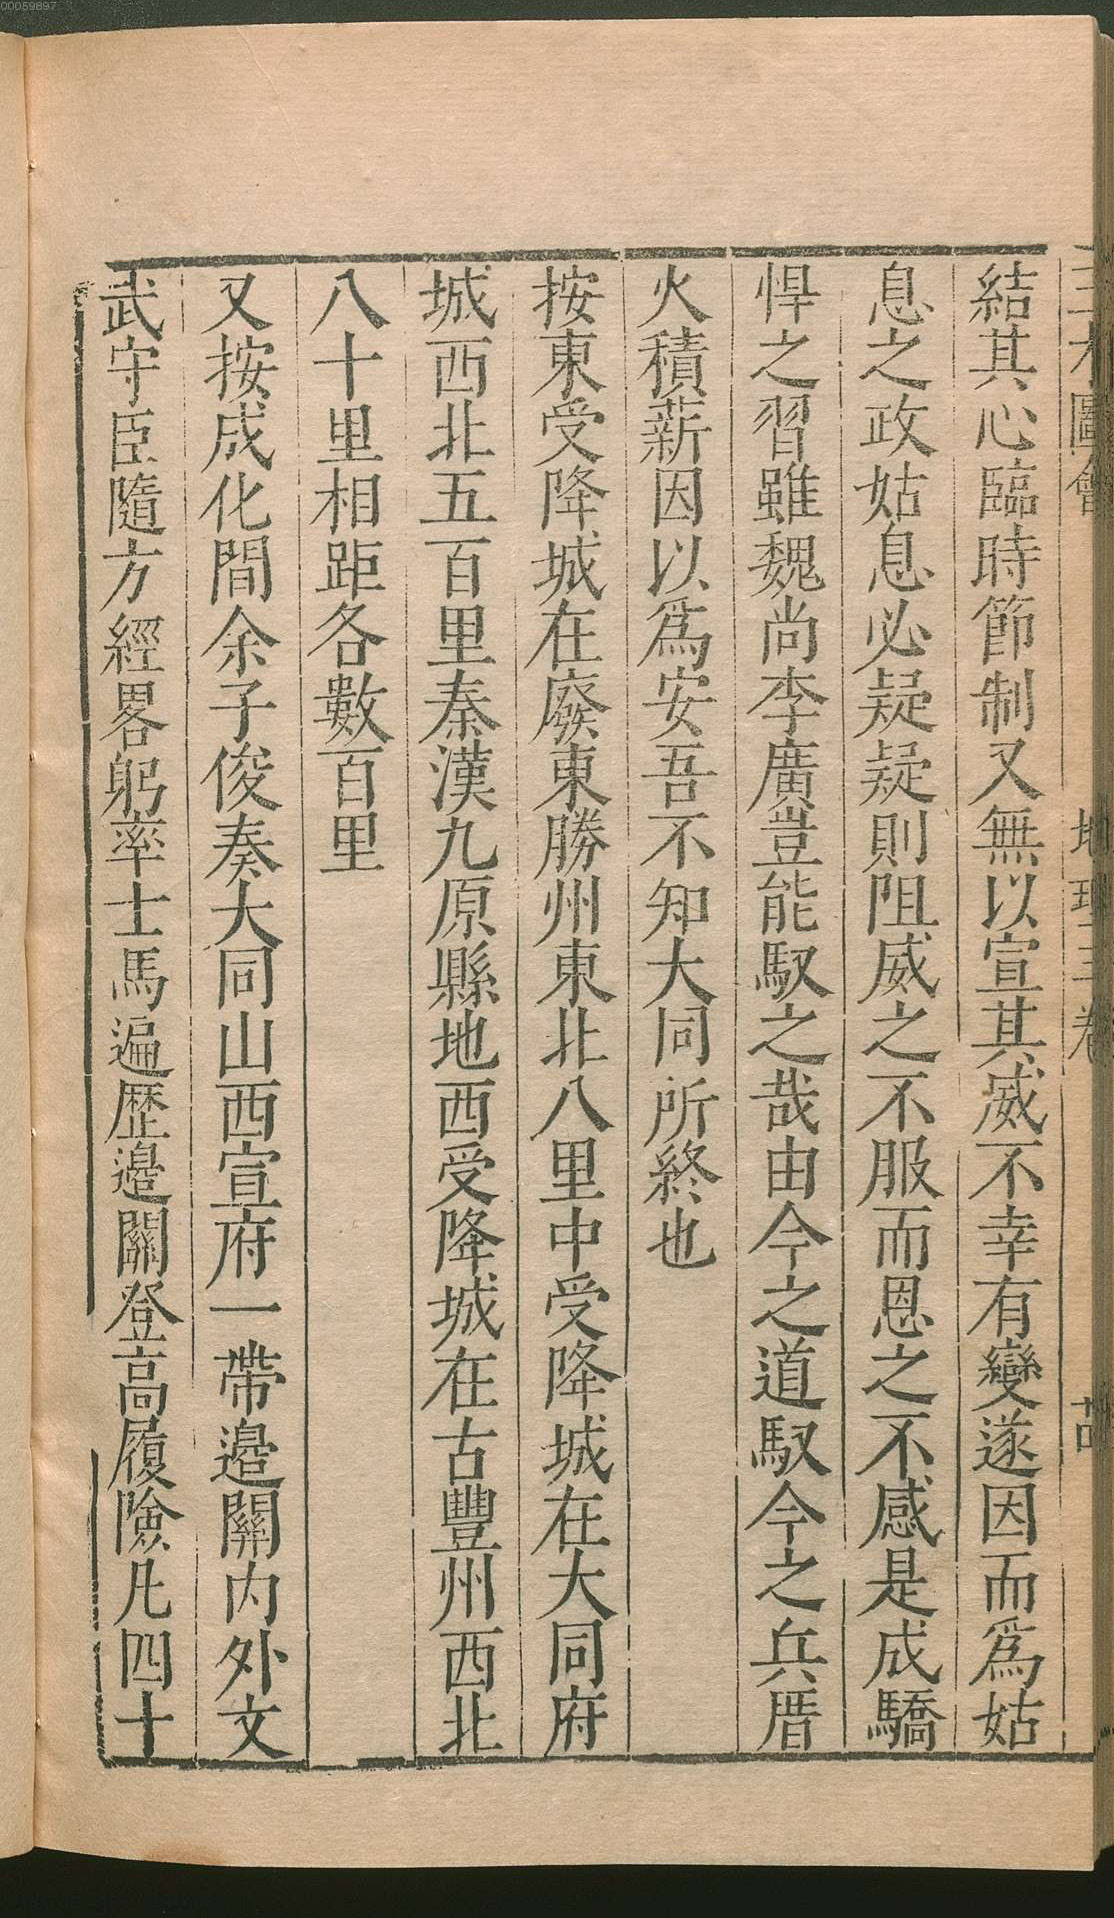 00059897
三才圖會 地理三卷
結其心臨時節制又無以宣其威不幸有變遂因而爲姑
息之政姑息必疑疑則阻威之不服而恩之不感是成驕
悍之習雖魏尚李廣豈能馭之哉由今之道馭今之兵厝
火積薪因以爲安吾不知大同所終也
按東受降城在廢東勝州東北八里中受降城在大同府
城西北五百里秦漢九原縣地西受降城在古豐州西北
八十里相距各數百里
又按成化間余子俊奏大同山西宣府一帶邊關内外文
武守臣隨方經畧躬率士馬遍歴邊關登高履險凡四十